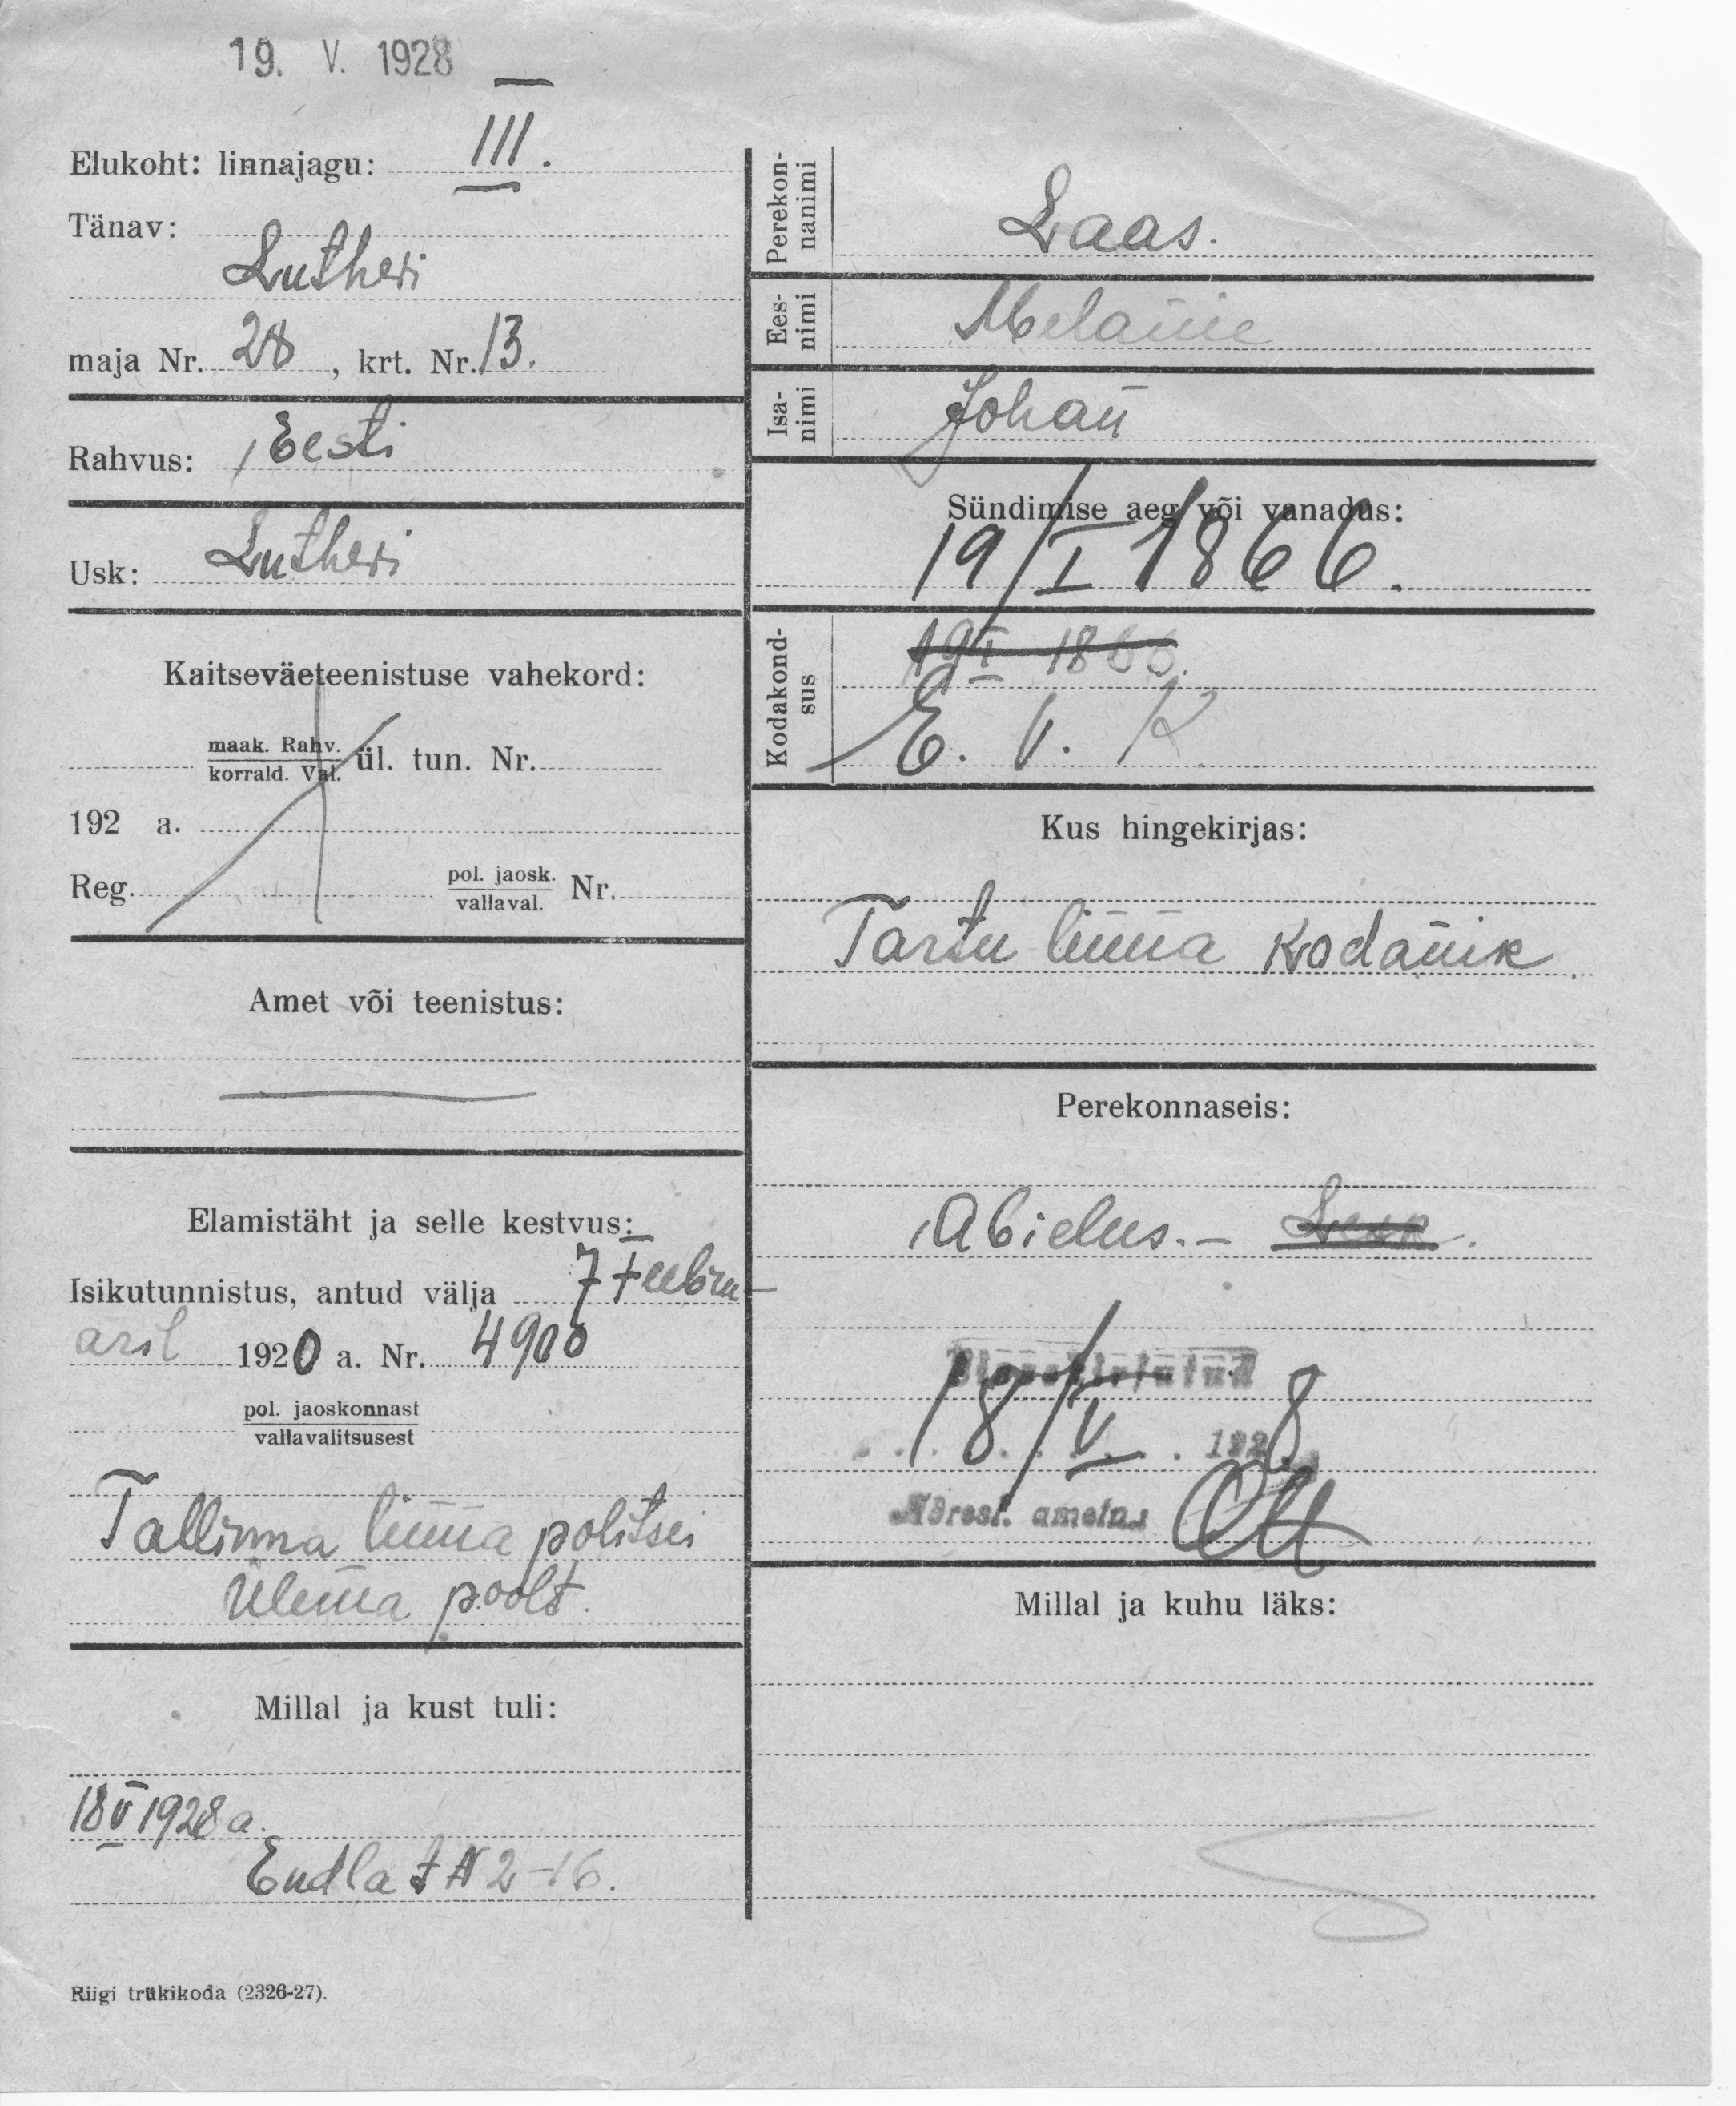 19. V. 1928
Elukoht: linnajagu: III.
Tänav:
Lutheri
maja Nr. 28, krt. Nr. 13.
Rahvus: Eesti
Usk: Lutheri
Kaitseväeteenistuse vahekord:
maak. Rahv.
korrald. Val.
ül. tun. Nr.
192 a.
Reg.
pol. jaosk.
vallaval.
Nr.
Amet või teenistus:
Elamistäht ja selle kestvus:
Isikutunnistus, antud välja 7 Feebru-
aril 1920 a. Nr. 4900
pol. jaoskonnast
vallavalitsusest
Tallinna linna politsei
Ülema poolt.
Millal ja kust tuli:
18 V 1928 a.
Endla t N 2-16.
Riigi trükikoda (2326-27).
Perekon-
nanimi
Laas.
Ees-
nimi
Melanie
Isa-
nimi
Johan̄
Sündimise aeg või vanadus:
19/I 1866.
Kodakond-
sus
19 I 1866.
E. V. K
Kus hingekirjas:
Tartu linna kodanik
Perekonnaseis:
Abielus. - Lesk.
Sissekirjutud
18/V 1928
Adresl. ametn. Ott
Millal ja kuhu läks: